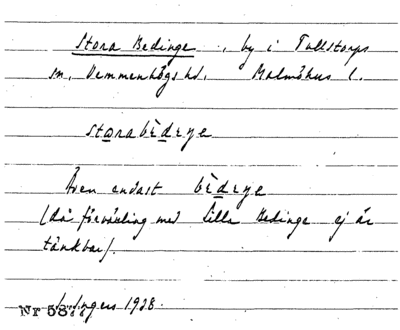 Stora Bedinge, by i Tullstorps
sn, Vemmenhögs hd, Malmöhus l.
storabèdeŋe
Även endast bèdeŋe
(då förväxling med Lilla Bedinge ej är
tänkbar).
Ingers 1928.
Nr 5877